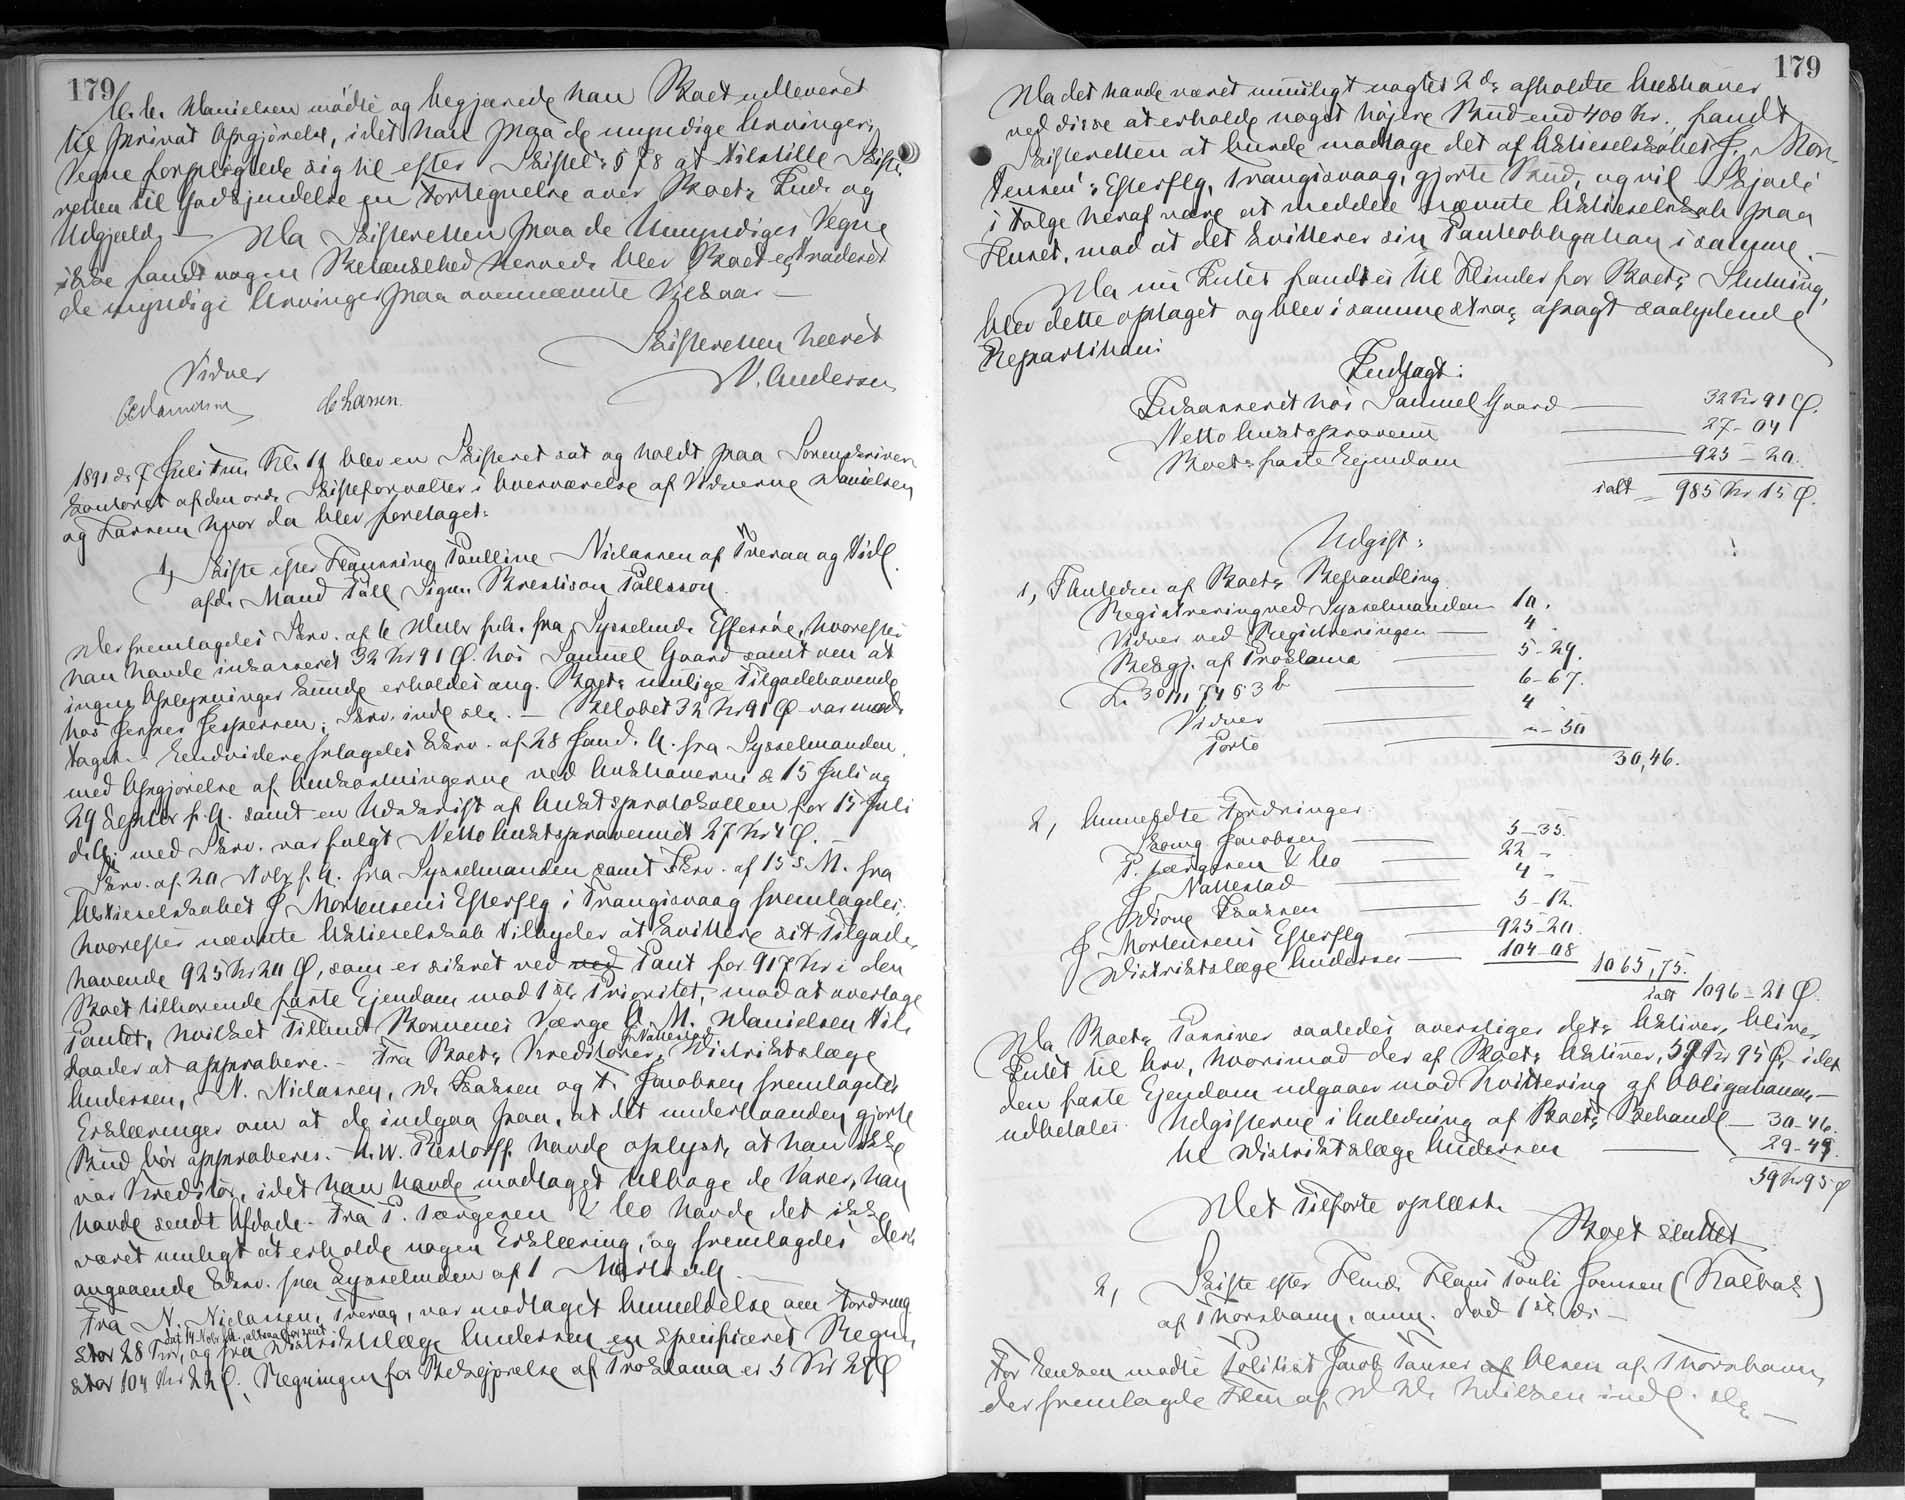 179
Danielsen mödte og begjærede han Boet udleveret
til privat Opgjörelse, idet han paa de myndige Arvingers
Vegne forpligtede sig til efter Skiftel: § 78 at tilstille Skifte-
retten til Godkjendelse en Fortegnelse over Boets Indt og
Udgjæld. — Da Skifteretten paa de Umyndiges Vegne
ikke fandt nogen Betænkelighed herved blev Boet extraderet
de myndige Arvinger paa ovennævnte Vilkaar —
Skifteretten hævet
N. Andersen
Vidner
Danielsen Larsen.
1891 d. 7 Juli Fm. Kl. 11 blev en Skifteret sat og holdt paa Sorenskriver
Kontoret af den ord. Skifteforvalter i Overværelse af Vidnerne Danielsen
og Larsen hvor da blev foretaget:
1, Skifte efter Pauline Niclassen af Tveraa og
afd. Mand Páll Sigm. Pállsson.
Der fremlagdes Skr. af 6 Decbr f. A. fra Sysselmd. Effersöe, hvorefter
han havde inkasseret 32 Kr 91 Ø. hos Samuel Gaard samt om at
ingen Oplysninger kunde erholdes ang. Boets mulige Tilgodehavende
hos Jesper Jespersen. Skr. indl slg. — Belöbet 32 Kr 91 Ø var mod-
taget. Endvidere frlagdes Skr. af 28 Jan d. A. fra Sysselmanden
med Opgjörelse af Omkostningerne ved Auktionerne d. 15 Juli og
29 Septbr f. A. samt en Udskrift af Auktsprotokollen for 15 Juli
d. A. med Skr. var fulgt Netto Auktsprovenuet 27 Kr 4 Ø. —
Skr. af 20 Novbr f. A. fra Sysselmanden samt Skr. af 15 s. M. fra
Aktieselskabet J. Mortensens Efterflg i Trangisvaag fremlagdes,
hvorefter nævnte Aktieselskab tilbyder at kvittere sit Tilgode-
havende 925 Kr 20 Ø, som er sikret ved ved Pant for 917 Kr i den
Boet tilhörende faste Ejendom mod 1ste Prioritet, mod at overtage
Pantet, hvilket Tilbud Börnenes Værge A. M. Danielsen til-
raader at approbere. — Fra Boets Kreditorer, J. Nattestad, Distriktslæge
Andersen, N. Niclassen, D. Isaksen og S. Jacobsen fremlagdes
Erklæringer om at de indgaa paa, at det underhaanden gjorte
Bud bör approberes. — A. W. Restorff havde oplyst, at han ikke
var Kreditor, idet han havde modtaget tilbage de Varer, han
havde sendt Afdöde. — Fra P. Færgesen & Co havde det ikke
været muligt at erholde nogen Erklæring, og fremlagdes derh
angaaende Skr. fra Sysselmden af 1 Marts d. A.
Fra N. Niclassen, Tveraa, var modtaget Anmeldelse om Fordring
dat 14 Novbr f. A., altsaa for sent
stor 28 Kr, og fra Distriktslæge Andersen en specificeret Regng
stor 104 Kr 22 Ø. Regningen for Bekjgörelse af Proklama er 5 Kr 29 Ø
179
Da det havde været umuligt uagtet 2de afholdte Auktioner
ved disse at erholde noget höjere Bud end 400 Kr., fandt
Skifteretten at burde modtage det af Aktieselskabet J. Mor-
tensens Efterflg, Trangisvaag, gjorte Bud, og vil Skjöde
i Fölge heraf være at meddele nævnte Aktieselskab paa
Huset, mod at det kvitterer sin Pantobligation i samme. —
Da nu Intet fandtes til Hinder for Boets Slutning,
blev dette optaget og blev i samme strax afsagt saalydende
Repartition:
Indtægt:
Inkasseret hos Samuel Gaard — 32 Kr 91 Ø.
Netto Auktsprovenu — 27 - 04
Boets faste Ejendom — 925 - 20.
ialt — 985 Kr 15 Ø.
Udgift:
1, I Anledn af Boets Behandling
Registrering ved Sysselmanden 10.
Vidner ved Registreringen — 4.
Bekgj. af Proklama — 5-29.
L. 30/11 74 § 3 b — 6-67.
Vidner — 4
Porto — " - 50
30,46.
2, Anmeldte Fordringer.
Jacobsen — 5-35.
P. Færgesen & Co — 22 -
J Nattestad — 4 -
Isaksen — 5-12.
J Mortensens Efterflg — 925-20.
Distriktslæge Andersen — 104-08
1065,75.
ialt 1096 - 21 Ø.
Da Boets Passiver saaledes overstiger dets Aktiver, bliver
Intet til Arv, hvorimod der af Boets Aktiver, 59 Kr 95 Ø, idet
den faste Ejendom udgaaer mod Kvittering af Obligationen —
udbetales Udgifterne i Anledning af Boets Behandl — 30-46.
til Distriktslæge Andersen — 29-49.
59 Kr 95 Ø
Det Tilförte oplæst.
Boet sluttet
2, Skifte efter Hmd. Hans Pauli Joensen (Kalbak)
af Thorshavn, anm. död 1ste ds —
For Enken mödte Politist Jacob Olsen af Thorshavn,
der fremlagde indl. slg —